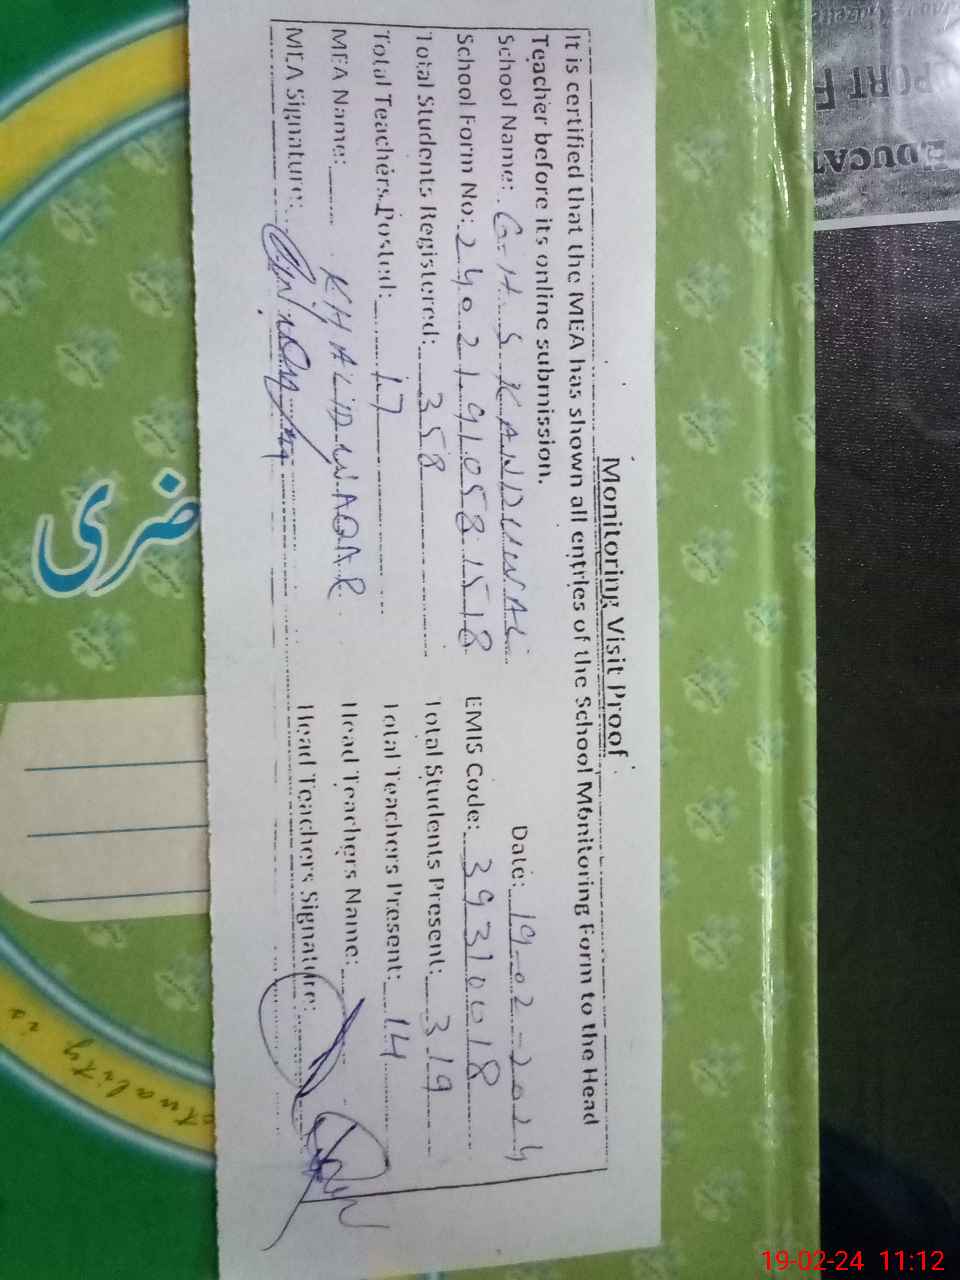 Monitoring Visit Proof
It is certified that the MEA has shown all entries of the School Monitoring Form to the Head
Teacher before its online submission.
Date: 19-02-2024
School Name: G.H.S KANDUWAL
School Form No: 24021910581518 EMIS Code: 39310018
Total Students Registered: 358 Total Students Present: 319
Total Teachers Posted: 17 Total Teachers Present: 14
MEA Name: KHALID WAQAR Head Teachers Name:
MEA Signature: Head Teachers Signature:
ضری
PORT F
EDUCAT
19-02-24 11:12